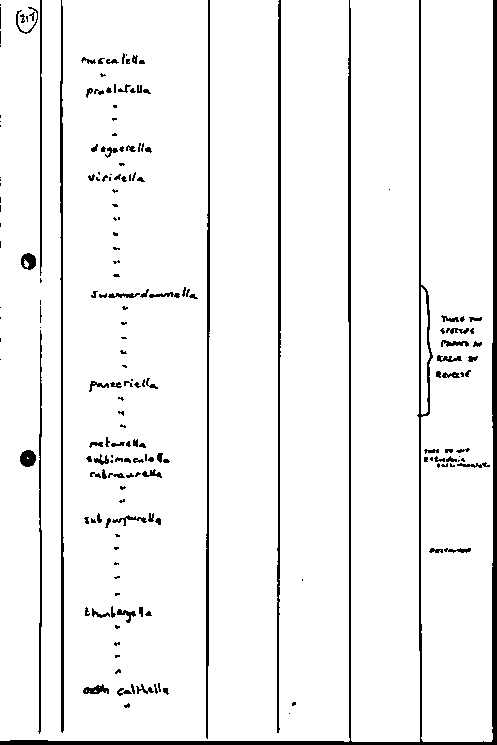 217
muscalella
"
praelatella
"
"
"
degeerella
"
viridella
"
"
"
"
"
"
"
swammerdammella
"
"
"
"
"
panzeriella
"
"
"
metaxella
subbimaculella
rubroaurella
"
"
subpurpurella
"
"
"
"
"
thunbergella
"
"
"
"
calthella
"
THESE TWO
SPECIES
REVERSE